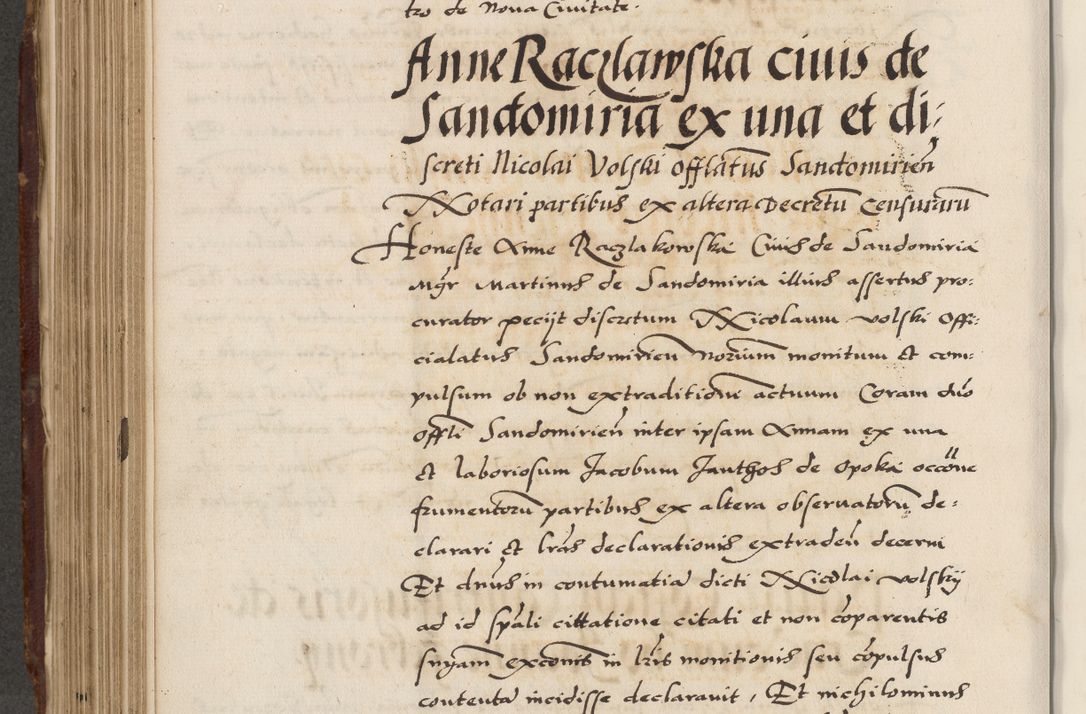 tro de Noua Ciuitate.
Anne Raczlawska ciuis de
Sandomiria ex una et di-
screti Nicolai Volski offlatus Sandomirien
Notari partibus ex altera Decretu Censuraru
Honeste Anne Raczlakowska Ciuis de Sandomiria
Mgr Martinus de Sandomiria illius assertus pro-
curator peciit discretum Nicolaum Volski Offi-
cialatus Sandomirien Norium monitum et com-
pulsum ob non extraditioni actuum Coram dno
offli Sandomirien inter ipsam Annam ex una
et laboriosum Jacobum Janthos de Opoka occone
frumentoru partibus ex altera obseruatoru de-
clarari et lras declarationis extraden decerni
Et dnus in contumatia dicti Nicolai Volskij
ad id spali cittatione citati et non coparentis
snyam exconis in lris monitionis seu copulsus
contenta incidisse declarauit, Et nichilominus